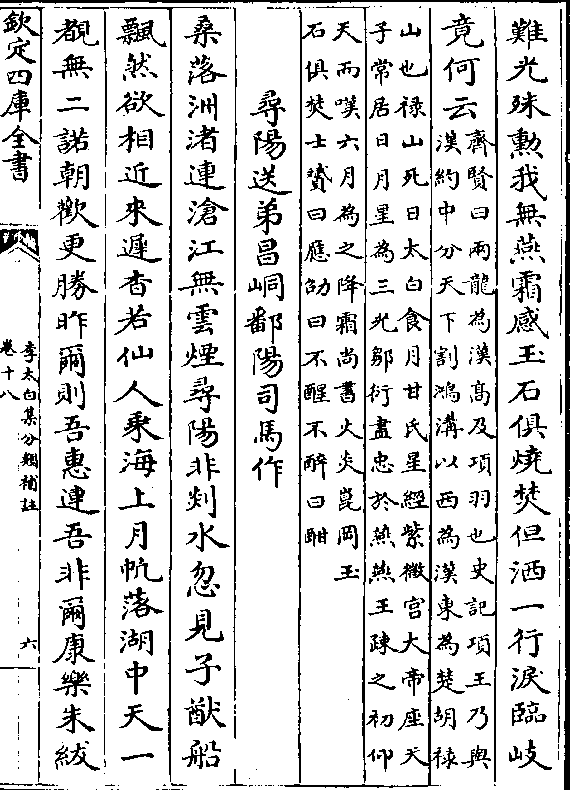 難光殊勲我無燕霜感玉石俱燒焚但洒一行淚臨岐
竟何云
齊賢曰兩龍為漢髙及項羽也史記項王乃與
漢約中分天下割鴻溝以西為漢東為楚胡禄
山也禄山死日太白食月甘氏星經紫微宫大帝座天
子常居日月星為三光鄒衍盡忠於燕燕王疎之初仰
天而嘆六月為之降霜尚書火炎崑岡玉
石俱焚士贇曰應劭曰不醒不醉曰酣
尋陽送弟昌峒鄱陽司馬作
桑落洲渚連滄江無雲煙尋陽非剡水忽見子猷船
飄然欲相近來遲杳若仙人乘海上月帆落湖中天一
覩無二諾朝歡更勝昨爾則吾惠連吾非爾康樂朱紱
欽定四庫全書
李太白集分類補註
卷十八
六